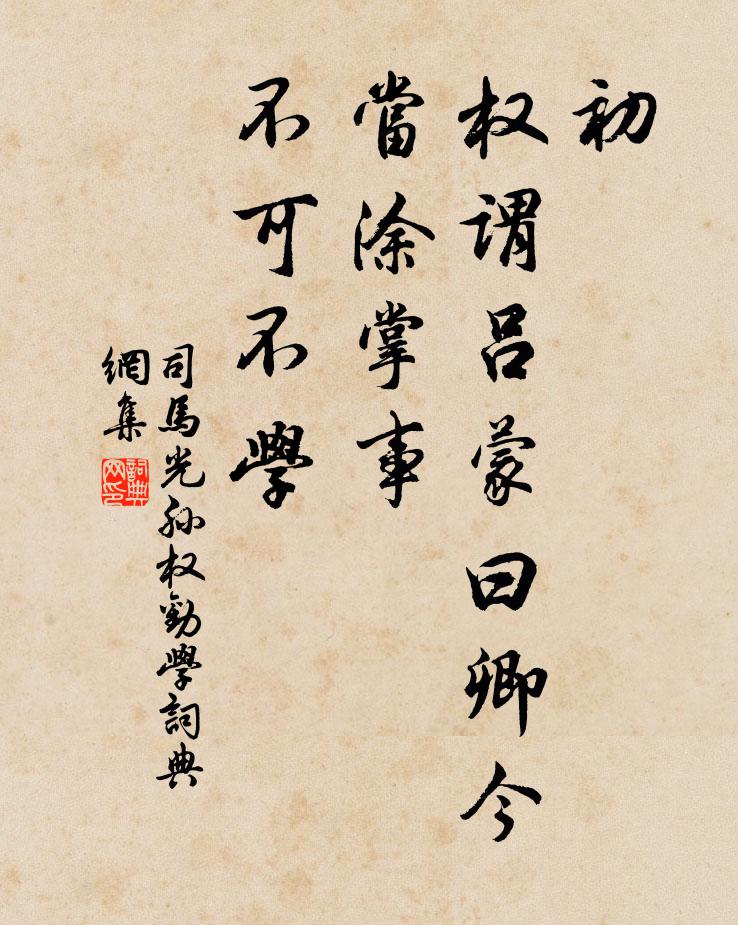 初
权謂吕蒙曰卿今
當涂掌事
不可不學
司馬光孙权勸學詞典
網集
詞典
网印